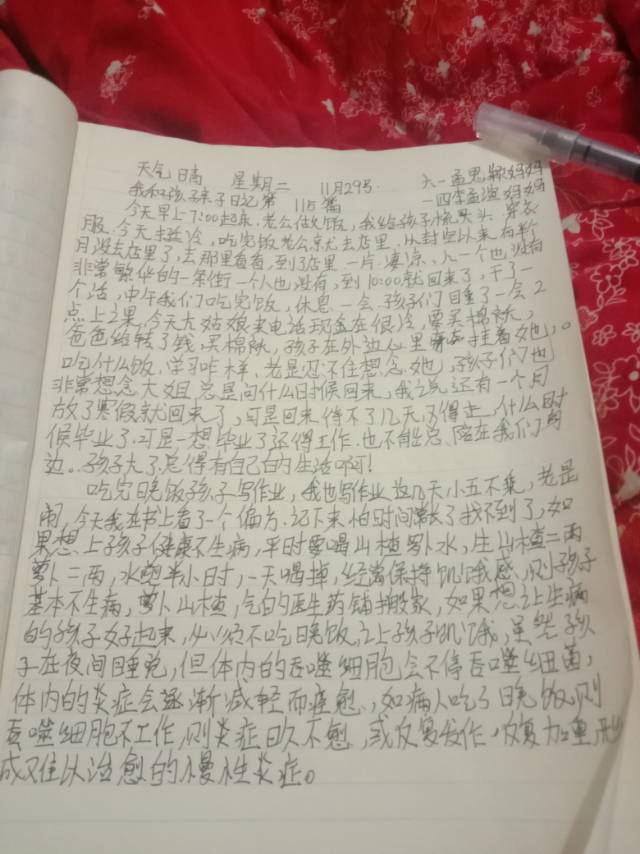 天气 晴 星期二 11月29号 六一孟思颖妈妈
我和孩子亲子日记第 115篇 一四李孟渲妈妈
今天早上7:00起床,老公做饭,我给孩子梳头 穿衣
服,今天挺冷,吃完饭老公就去店里,从封控以来有半个
月没去店里了,去那里看看,到了店里一片凄凉,人一个也没有
非常繁华的一条街一个人也没有,到10:00就回来了,干了一
个活,中午我们吃完饭,休息一会,孩子们睡了一会2
点上课,今天大姑娘来电话现在很冷,要买棉袄,
爸爸给转了钱,买棉袄,孩子在外边心里挂着她,
吃什么饭,学习咋样,老是忍不住想念她,孩子们也
非常想念大姐,总是问什么时候回来,我说还有一个月
放了寒假就回来了,可是回来待不了几天又得走,什么时
候毕业了,可是一想毕业了还得工作,也不能总陪在我们身
边。孩子大了总得有自己的生活啊!
吃完晚饭孩子写作业,我也写作业这几天小五不乘,老是
闹,今天我在书上看了一个偏方,记下来怕时间长了找不到了,如
果想上孩子健康不生病,平时要喝山楂萝卜水,生山楂二两
萝卜二两,水熬半小时,一天喝掉,经常保持饥饿感,则孩子
基本不生病,萝卜山楂,气的医生药铺搬家,如果想让生病
的孩子好起来,必须不吃晚饭,让孩子饥饿,虽然孩
子在夜间睡觉,但体内的吞噬细胞会不停吞噬细菌,
体内的炎症会逐渐减轻而痊愈,如病人吃了晚饭则
吞噬细胞不工作,则炎症日久不愈,或反复发作,反复加重,形
成难以治愈的慢性炎症。